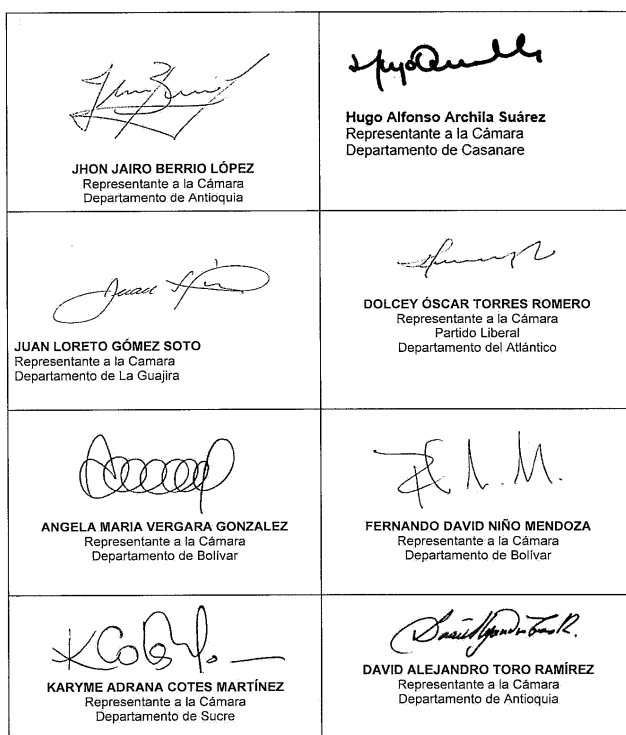 JHON JAIRO BERRIO LÓPEZ
Representante a la Cámara
Departamento de Antioquia
Hugo Alfonso Archila Suárez
Representante a la Cámara
Departamento de Casanare
JUAN LORETO GÓMEZ SOTO
Representante a la Camara
Departamento de La Guajira
DOLCEY ÓSCAR TORRES ROMERO
Representante a la Cámara
Partido Liberal
Departamento del Atlántico
ANGELA MARIA VERGARA GONZALEZ
Representante a la Cámara
Departamento de Bolívar
FERNANDO DAVID NIÑO MENDOZA
Representante a la Cámara
Departamento de Bolívar
KARYME ADRANA COTES MARTÍNEZ
Representante a la Cámara
Departamento de Sucre
DAVID ALEJANDRO TORO RAMÍREZ
Representante a la Cámara
Departamento de Antioquia